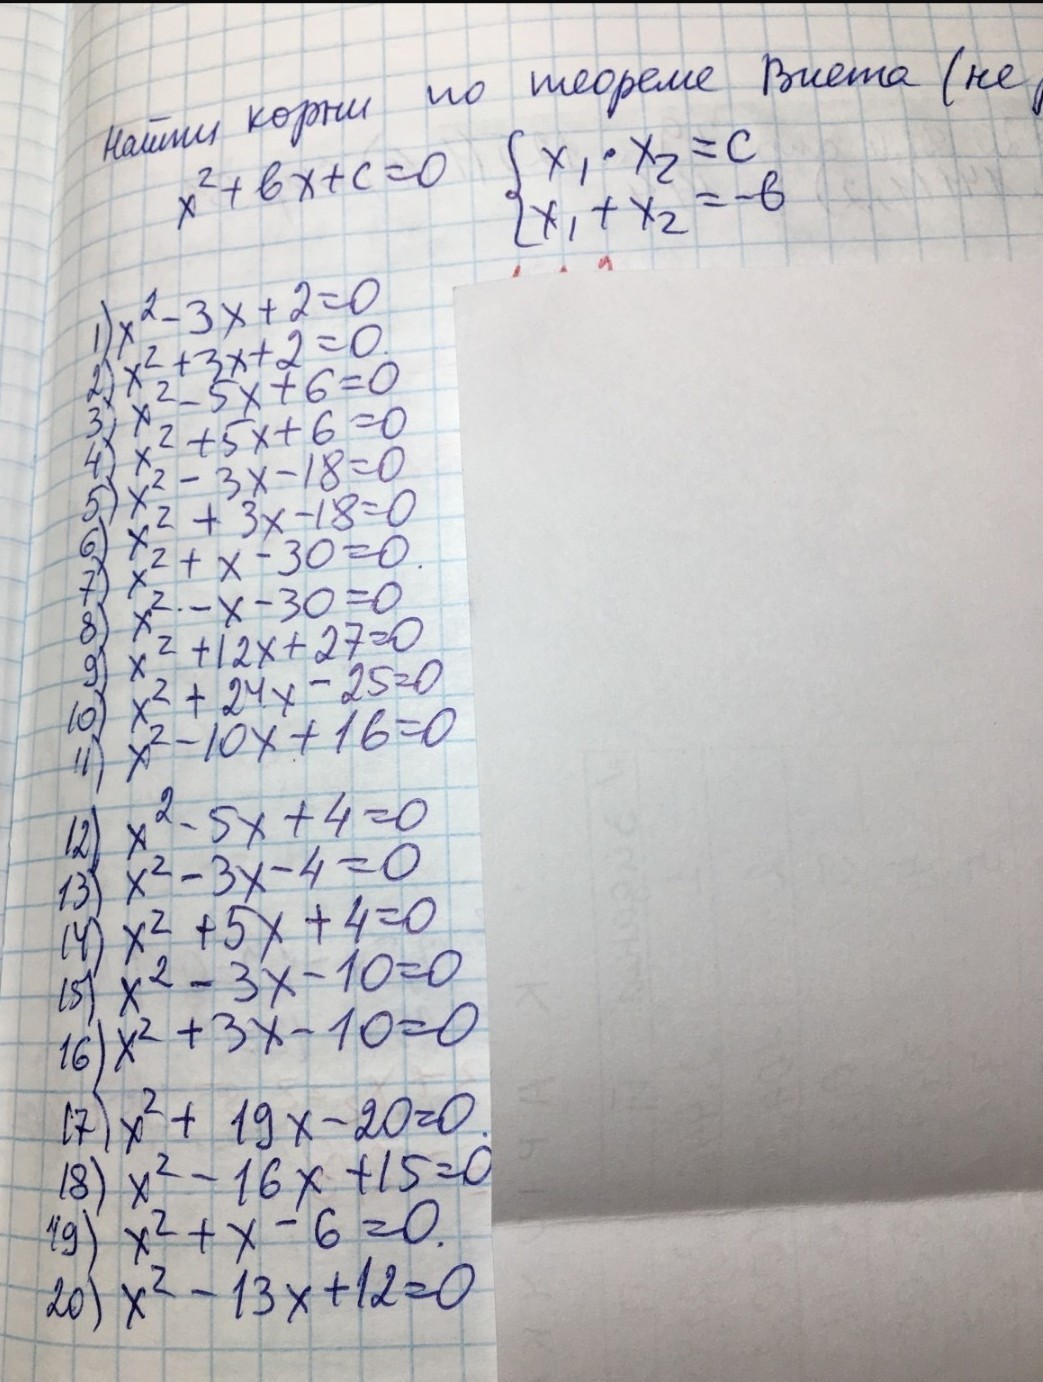 Найти корни по теореме Виета (не
x² + bx + c = 0
{ x₁ · x₂ = c
x₁ + x₂ = -b
1) x² - 3x + 2 = 0
2) x² + 3x + 2 = 0.
3) x² - 5x + 6 = 0
4) x² + 5x + 6 = 0
5) x² - 3x - 18 = 0
6) x² + 3x - 18 = 0
7) x² + x - 30 = 0.
8) x² - x - 30 = 0
9) x² + 12x + 27 = 0
10) x² + 24x - 25 = 0
11) x² - 10x + 16 = 0
12) x² - 5x + 4 = 0
13) x² - 3x - 4 = 0
14) x² + 5x + 4 = 0
15) x² - 3x - 10 = 0
16) x² + 3x - 10 = 0
17) x² + 19x - 20 = 0.
18) x² - 16x + 15 = 0
19) x² + x - 6 = 0.
20) x² - 13x + 12 = 0